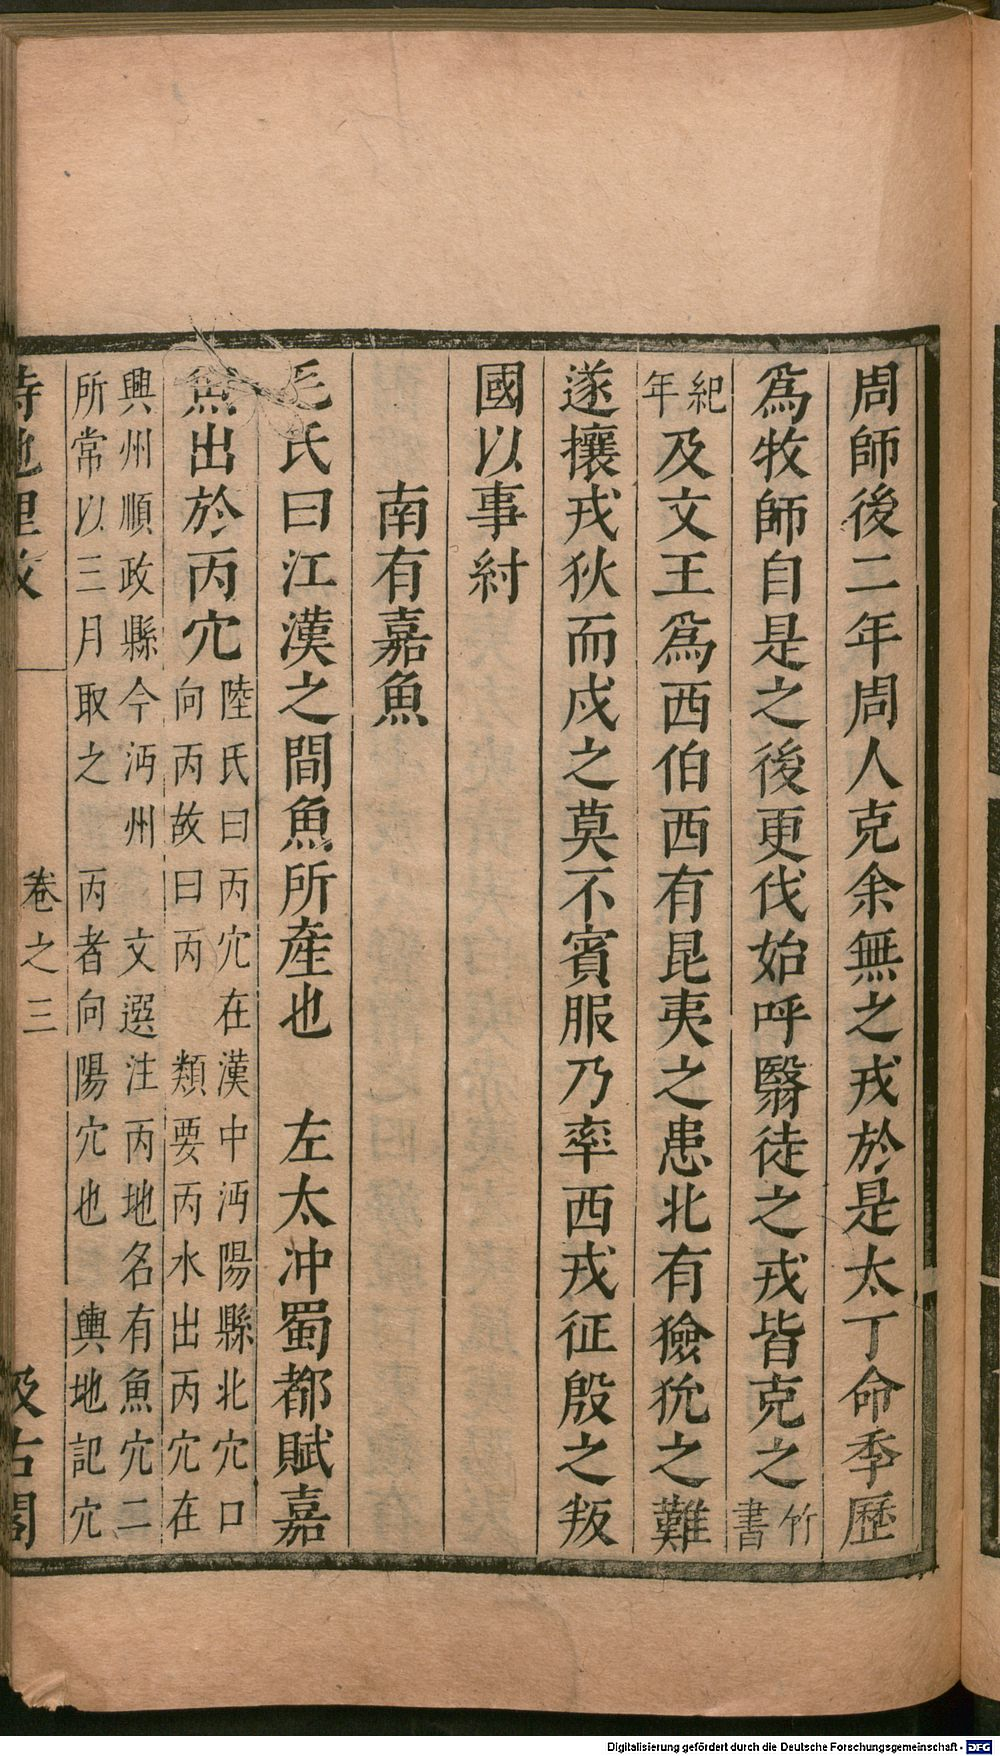 周師後二年周人克余無之戎於是太丁命季歷
爲牧師自是之後更伐始呼翳徒之戎皆克之竹書
紀年及文王爲西伯西有昆夷之患北有獫狁之難
遂攘戎狄而戍之莫不賓服乃率西戎征殷之叛
國以事紂
南有嘉魚
毛氏曰江漢之間魚所產也　左太冲蜀都賦嘉
魚出於丙穴陸氏曰丙穴在漢中沔陽縣北穴口
向丙故曰丙　類要丙水出丙穴在
興州順政縣今沔州　文選注丙地名有魚穴二
所常以三月取之　丙者向陽穴也　輿地記穴
詩地理攷　卷之三　汲古閣
Digitalisierung gefördert durch die Deutsche Forschungsgemeinschaft - DFG